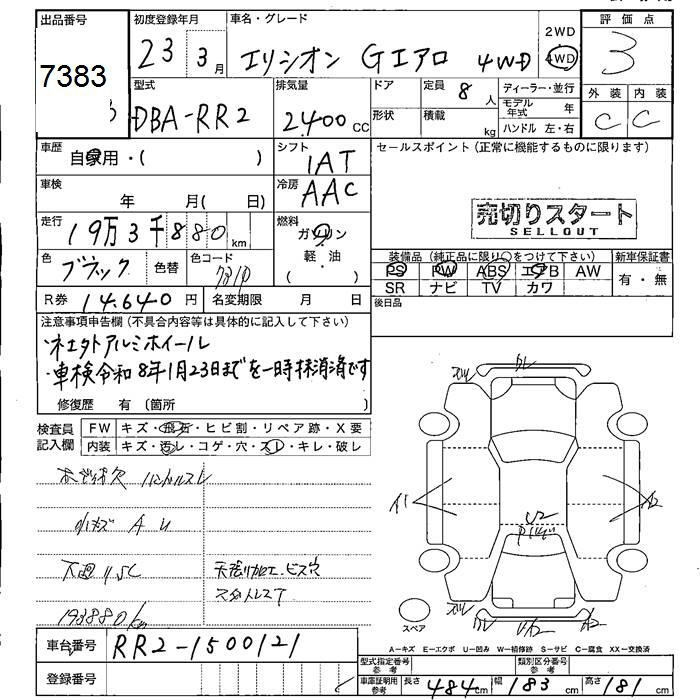 出品番号 初度登録年月 車名・グレード 2WD 評価点
7383 23 3月 エリシオン Gエアロ 4WD 4WD 3
型式 排気量 ドア 定員 8人 ディーラー・並行 外装 内装
DBA-RR2 2400cc 形状 積載 kg モデル年式 年 C C
ハンドル 左・右
車歴 自家用・( ) シフト 1AT セールスポイント (正常に機能するものに限ります)
車検 年 月( 日) 冷房 AAC
走行 19万3千880km 燃料 ガソリン 売切りスタート
SELLOUT
軽油
( )
色 ブラック 色替 色コード 装備品 (純正品に限り○をつけて下さい) 新車保証書
PS PW ABS エアB AW 有・無
SR ナビ TV カワ
R券 14,640円 名変期限 月 日 後日品
注意事項申告欄 (不具合内容等は具体的に記入して下さい)
・車検令和8年1月23日までを一時抹消済です
修復歴 有 (箇所 )
検査員 FW キズ・飛石・ヒビ割・リペア跡・X要
記入欄 内装 キズ・汚レ・コゲ・穴・スレ・キレ・破レ
ハンドルスレ
小キズ A U
天張り加工、ビス穴
193880km
A1 A2
U2
スペア
A-キズ E-エクボ U-凹み W-補修跡 S-サビ C-腐食 XX-交換済
車台番号 RR2-1500121
型式指定番号 参考 類別区分番号 参考
登録番号
車庫証明用 参考 長さ 484cm 幅 183cm 高さ 181cm